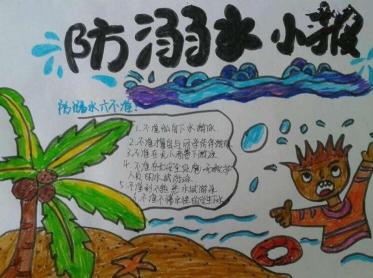 防溺水小报
防溺水六不准!
1.不准私自下水游泳
2.不准擅自与同学结伴游泳
3.不准在无人看管下游泳
4.不准在无安全设施、无救
人员的水域游泳
5.不准到不熟悉水域游泳
6.不准不